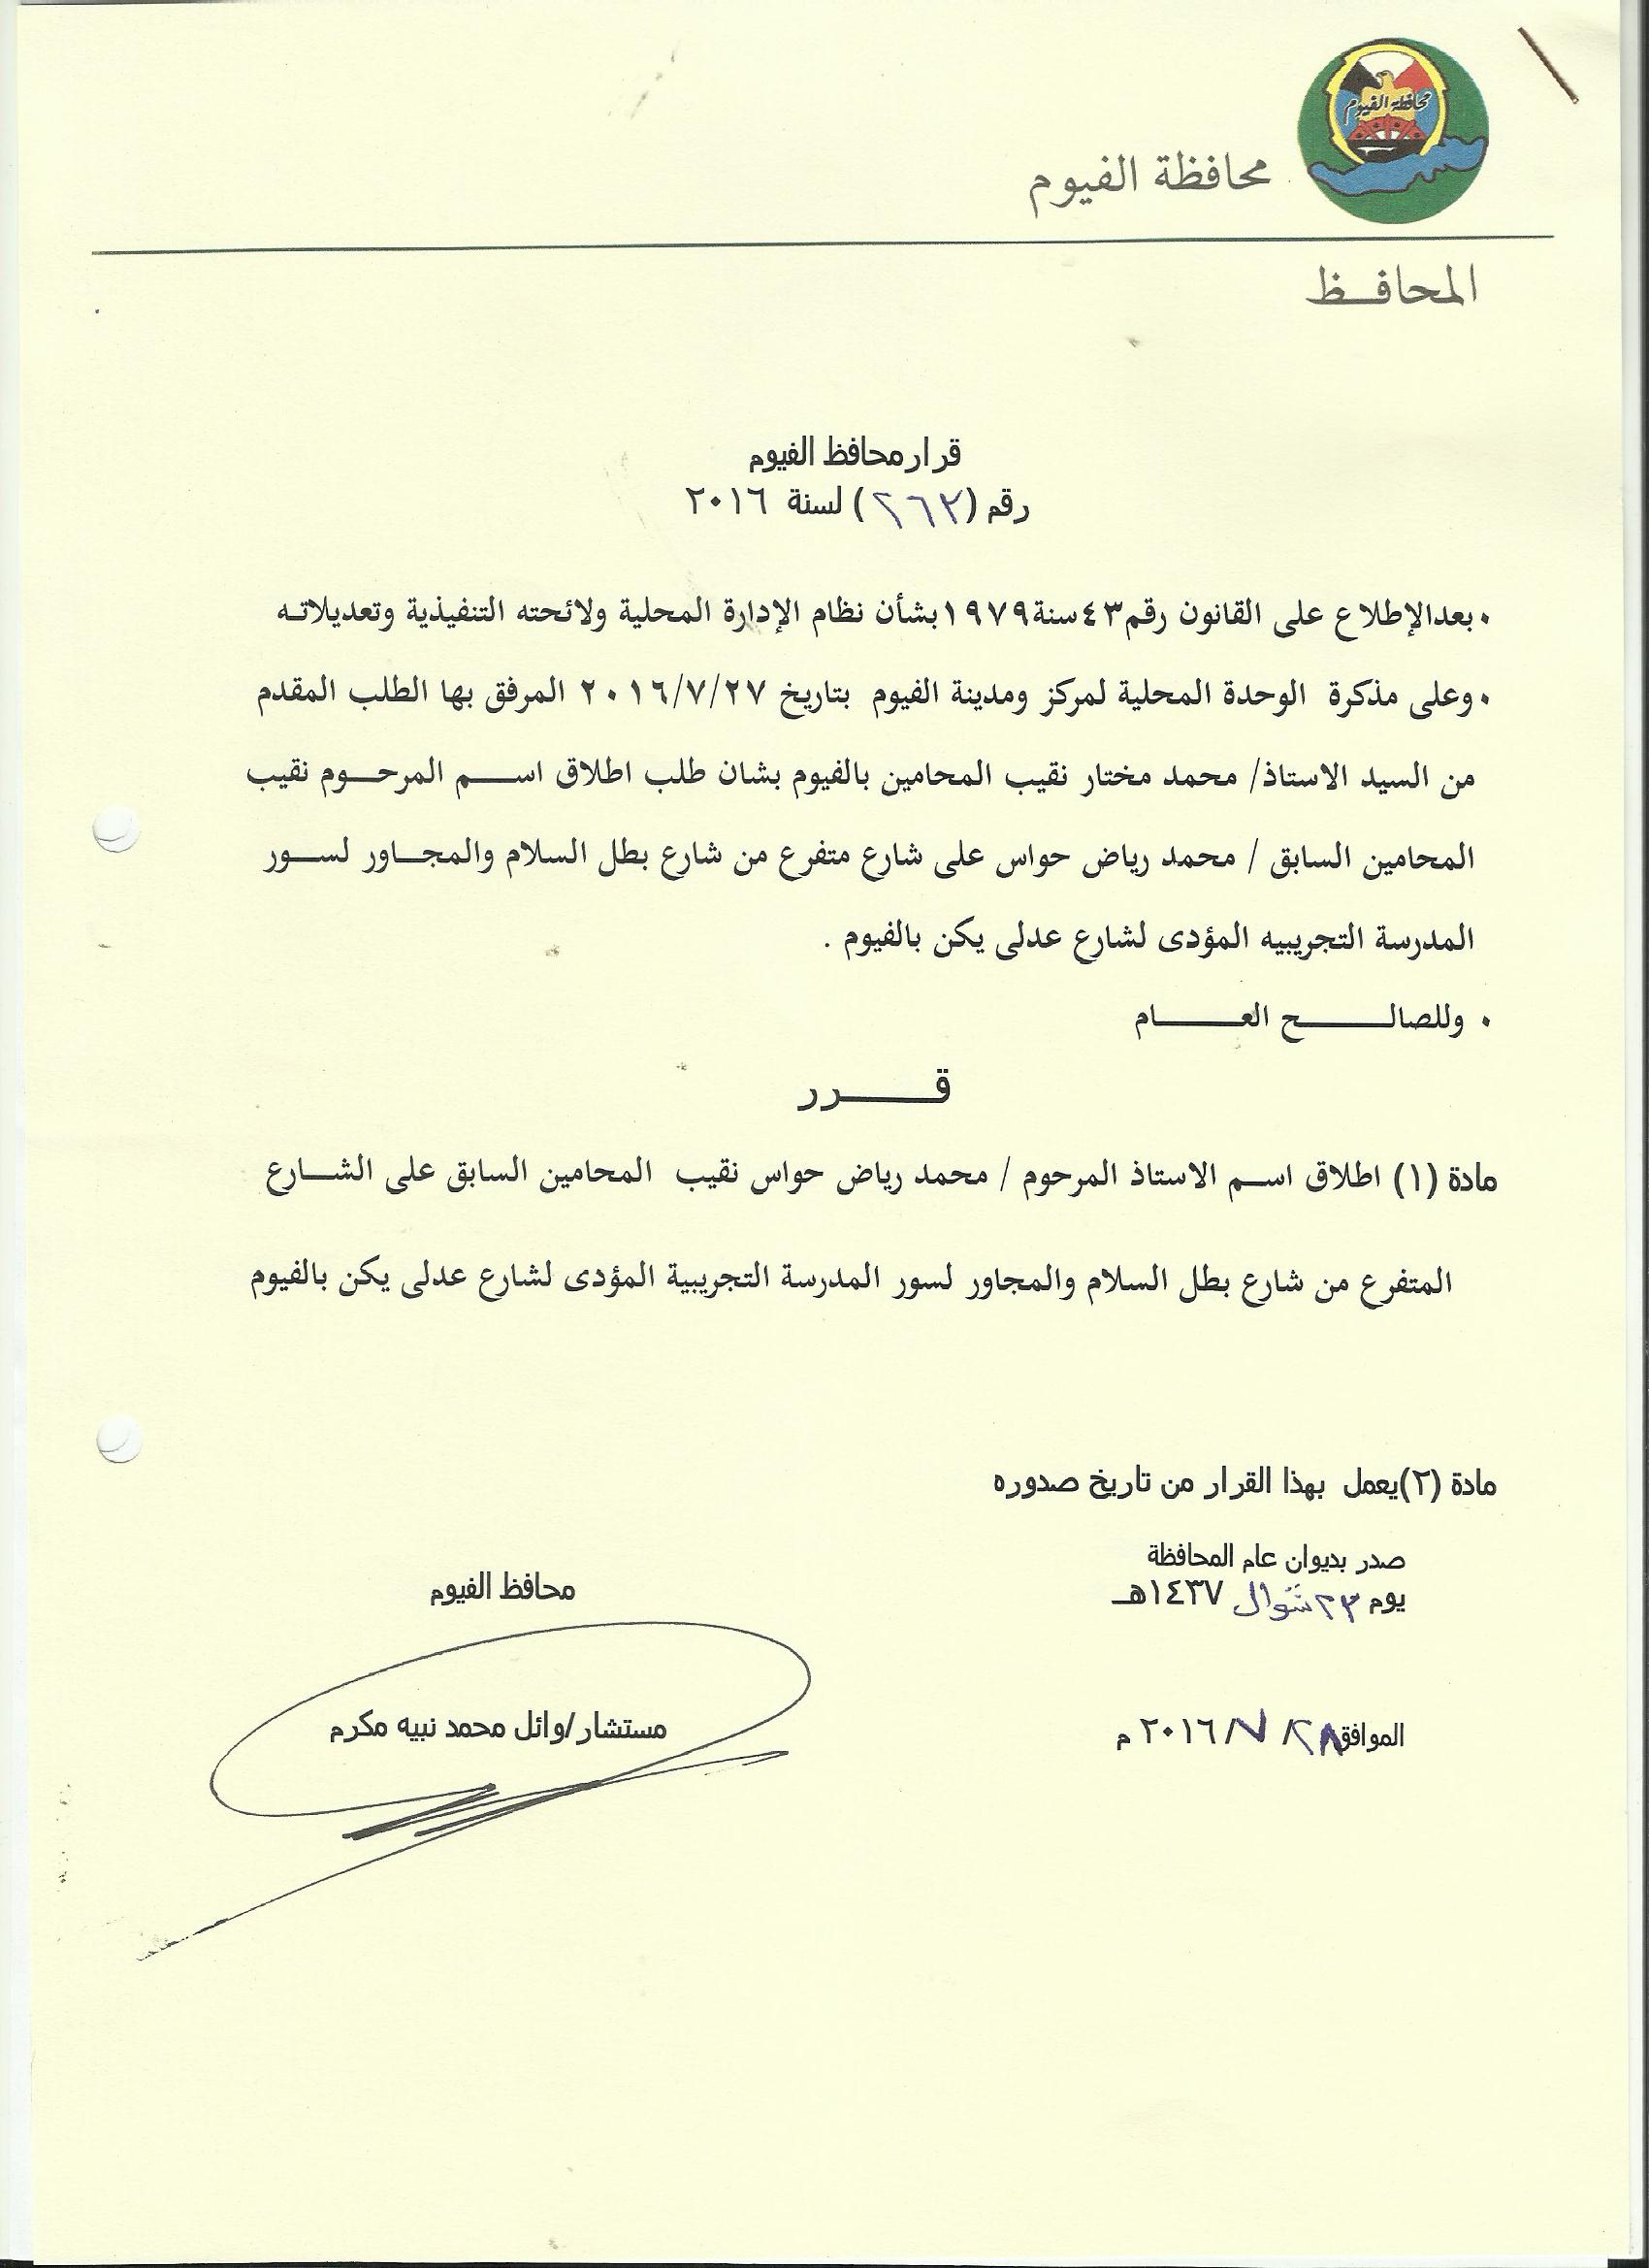 محافظة الفيوم
محافظة الفيوم
المحافــظ
قرار محافظ الفيوم
رقم (٢٦٢) لسنة ٢٠١٦
• بعد الإطلاع على القانون رقم ٤٣ سنة ١٩٧٩ بشأن نظام الإدارة المحلية ولائحته التنفيذية وتعديلاتـه
• وعلى مذكرة الوحدة المحلية لمركز ومدينة الفيوم بتاريخ ٢٠١٦/٧/٢٧ المرفق بها الطلب المقدم
من السيد الاستاذ/ محمد مختار نقيب المحامين بالفيوم بشان طلب اطلاق اســم المرحــوم نقيب
المحامين السابق / محمد رياض حواس على شارع متفرع من شارع بطل السلام والمجــاور لســور
المدرسة التجريبيه المؤدى لشارع عدلى يكن بالفيوم .
• وللصالــــح العــــام
قــــرر
مادة (١) اطلاق اسـم الاستاذ المرحوم / محمد رياض حواس نقيب المحامين السابق على الشــارع
المتفرع من شارع بطل السلام والمجاور لسور المدرسة التجريبية المؤدى لشارع عدلى يكن بالفيوم
مادة (٢) يعمل بهذا القرار من تاريخ صدوره
صدر بديوان عام المحافظة
يوم ٢٣ شوال ١٤٣٧هـ
الموافق ٢٨/ ٧/ ٢٠١٦ م
محافظ الفيوم
مستشار/وائل محمد نبيه مكرم